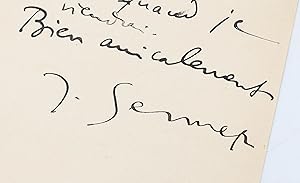 quand je
viendrai.
Bien amicalement
J. Sennep